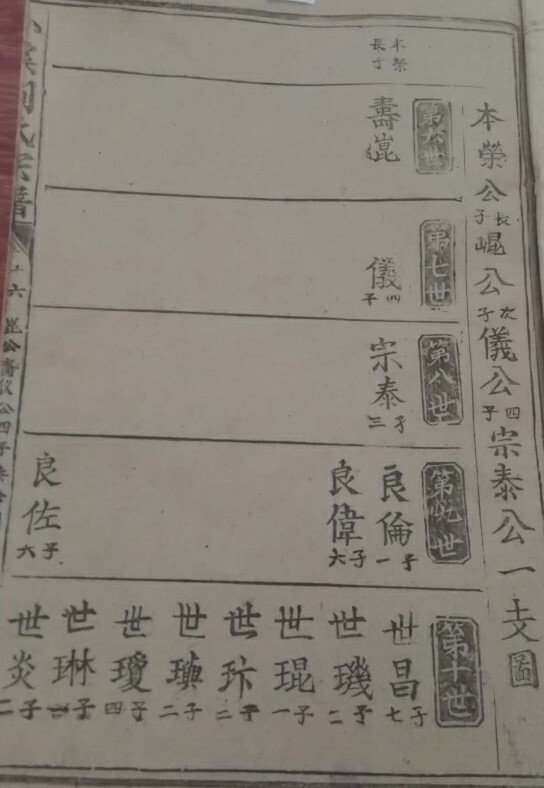 本榮公長子崐公次子儀公四子宗泰公一支圖
第六世
本榮長子
壽崑
第七世
儀
四子
第八世
宗泰
子三
第九世
良倫
子一
良偉
子六
良佐
子六
第十世
世昌
子七
世璣
子二
世琨
子一
世玣
子二
世璵
子二
世瓊
子四
世琳
世炎
子二